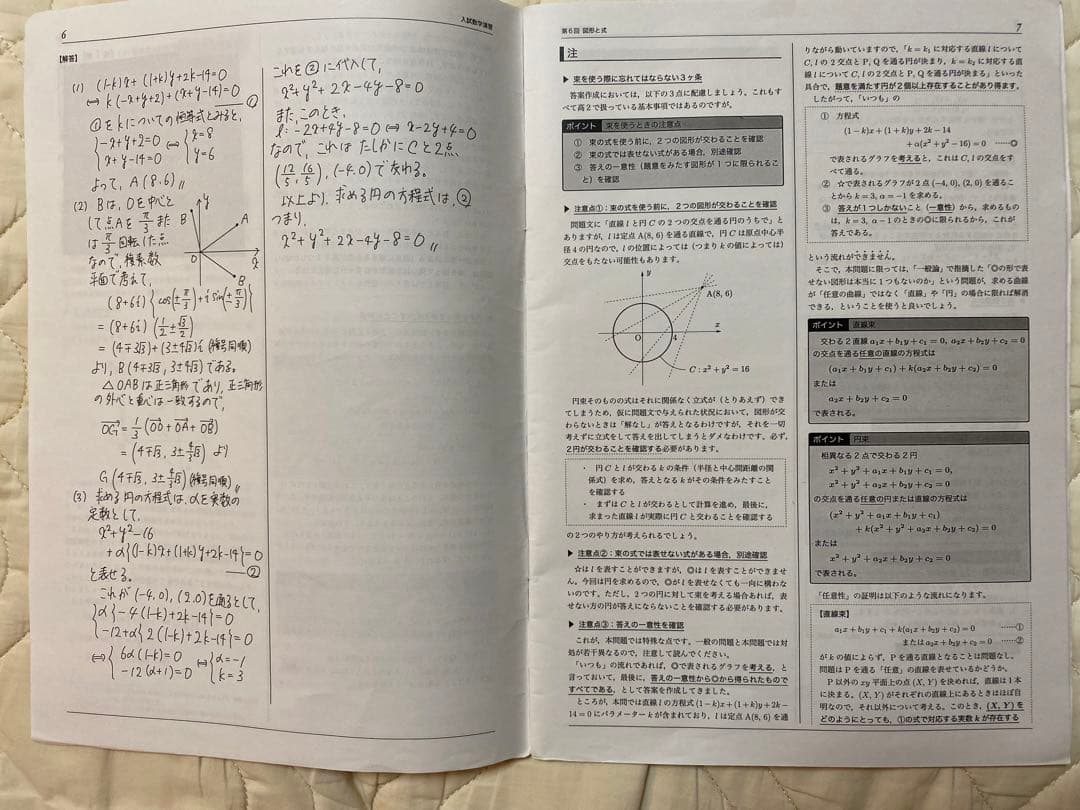 6
入試数学演習
【解答】
(1) (1-k)x+(1+k)y+2k-14=0
⇔ k(-x+y+2)+(x+y-14)=0 ―①
①をkについての恒等式とみると,
{-x+y+2=0 x+y-14=0 ⇔ {x=8 y=6
よって, A(8,6)〃
(2) Bは, Oを中心と
して点Aを π/3 また
は π/3 回転した点
なので, 複素数
平面で考えて,
y
B
A
O
x
B
(8+6i){cos(±π/3)+i sin(±π/3)}
=(8+6i)(1/2±√3/2)
=(4∓3√3)+(3±4√3)i (複号同順)
より, B(4∓3√3, 3±4√3)である。
△OABは正三角形であり, 正三角形
の外心と重心は一致するので,
OG=1/3(OO+OA+OB)
=(4∓√3, 3±4/3√3) より
G(4∓√3, 3±4/3√3)(複号同順)〃
(3) 求める円の方程式は, αを実数の
定数として,
x²+y²-16
+α{(1-k)x+(1+k)y+2k-14}=0
と表せる。 ―②
これが(-4,0),(2,0)を通るとして,
{α{-4(1-k)+2k-14}=0
-12+α{2(1-k)+2k-14}=0
⇔{6α(1-k)=0 -12(α+1)=0 ⇔{α=-1 k=3
これを②に代入して,
x²+y²+2x-4y-8=0
また, このとき,
l:-2x+4y-8=0 ⇔ x-2y+4=0
なので, これは たしかに Cと2点
(12/5, 16/5), (-4,0)で交わる。
以上より, 求める円の方程式は, ②
つまり,
x²+y²+2x-4y-8=0〃
第6回 図形と式
7
注
▶ 束を使う際に忘れてはならない3ヶ条
答案作成においては、以下の3点に配慮しましょう。これもす
べて高2で扱っている基本事項ではあるのですが。
ポイント 束を使うときの注意点
① 束の式を使う前に、2つの図形が交わることを確認
② 束の式では表せない式がある場合、別途確認
③ 答えの一意性（題意をみたす図形が1つに限られるこ
と）を確認
▶ 注意点①：束の式を使う前に、2つの図形が交わることを確認
問題文に「直線 l と円 C の2つの交点を通る円のうちで」と
ありますが、l は定点 A(8, 6) を通る直線で、円 C は原点中心半
径4の円なので、l の位置によっては（つまり k の値によっては）
交点をもたない可能性もあります。
y
A(8, 6)
O
4
x
C : x² + y² = 16
円束そのものの式はそれに関係なく立式が（とりあえず）でき
てしまうため、仮に問題文で与えられた状況において、図形が交
わらないときは「解なし」が答えとなるわけですが、それを一切
考えずに立式をして答えを出してしまうとダメなわけです。必ず、
2円が交わることを確認する必要があります。
・ 円 C と l が交わる k の条件（半径と中心間距離の関
係式）を求め、答えとなる k がその条件をみたすこと
を確認する
・ まずは C と l が交わるとして計算を進め、最後に、
求まった直線 l が実際に円 C と交わることを確認する
の2つのやり方が考えられるでしょう。
▶ 注意点②：束の式では表せない式がある場合、別途確認
☆は l を表すことができますが、◎は l を表すことができませ
ん。今回は円を求めるので、◎が l を表せなくても一向に構わな
いのです。ただし、2つの円に対して束を考える場合あれば、表
せない方の円が答えにならないことを確認する必要があります。
▶ 注意点③：答えの一意性を確認
これが、本問題では特殊な点です。一般の問題と本問題では対
処が若干異なるので、注意して読んでください。
「いつも」の流れであれば、◎で表されるグラフを考える、と
言っておいて、最後に、答えの一意性から◎から得られたもので
すべてである、として答案を作成してきました。
ところが、本問では直線 l の方程式 (1 − k)x + (1 + k)y + 2k −
14 = 0 にパラメーター k が含まれており、l は定点 A(8, 6) を通
りながら動いていますので、「k = k₁ に対応する直線 l について
C, l の2交点と P, Q を通る円が決まり、k = k₂ に対応する直
線 l について C, l の2交点と P, Q を通る円が決まる」といった
具合で、題意を満たす円が2個以上存在することがあり得ます。
したがって、「いつも」の
① 方程式
(1 − k)x + (1 + k)y + 2k − 14
+ α(x² + y² − 16) = 0 ……◎
で表されるグラフを考えると、これは C, l の交点をす
べて通る。
② ☆で表されるグラフが2点 (−4, 0), (2, 0) を通るこ
とから k = 3, α = −1 を求める。
③ 答えが1つしかないこと（一意性）から、求めるもの
は、k = 3, α − 1 のときの◎に限られるから、これが
答えである。
という流れができません。
そこで、本問題に限っては、「一般論」で指摘した「◎の形で表
せない図形は本当に1つもないのか」という問題が、求める曲線
が「任意の曲線」ではなく「直線」や「円」の場合に限れば解消
できる、ということを使うと良いでしょう。
ポイント 直線束
交わる2直線 a₁x + b₁y + c₁ = 0, a₂x + b₂y + c₂ = 0
の交点を通る任意の直線の方程式は
(a₁x + b₁y + c₁) + k(a₂x + b₂y + c₂) = 0
または
a₂x + b₂y + c₂ = 0
で表される。
ポイント 円束
相異なる2点で交わる2円
x² + y² + a₁x + b₁y + c₁ = 0,
x² + y² + a₂x + b₂y + c₂ = 0
の交点を通る任意の円または直線の方程式は
(x² + y² + a₁x + b₁y + c₁)
+ k(x² + y² + a₂x + b₂y + c₂) = 0
または
x² + y² + a₂x + b₂y + c₂ = 0
で表される。
「任意性」の証明は以下のような流れになります。
【直線束】
a₁x + b₁y + c₁ + k(a₂x + b₂y + c₂) = 0 ……①
または a₂x + b₂y + c₂ = 0 ……②
が k の値によらず、P を通る直線となることは問題なし。
問題は P を通る「任意」の直線を表せているかどうか。
P 以外の xy 平面上の点 (X, Y) を決めれば、直線は1本
に決まる。(X, Y) がそれぞれの直線上にあるときはほぼ自
明なので、それ以外について考える。このとき、(X, Y) を
どのようにとっても、①の式で対応する実数 k が存在する